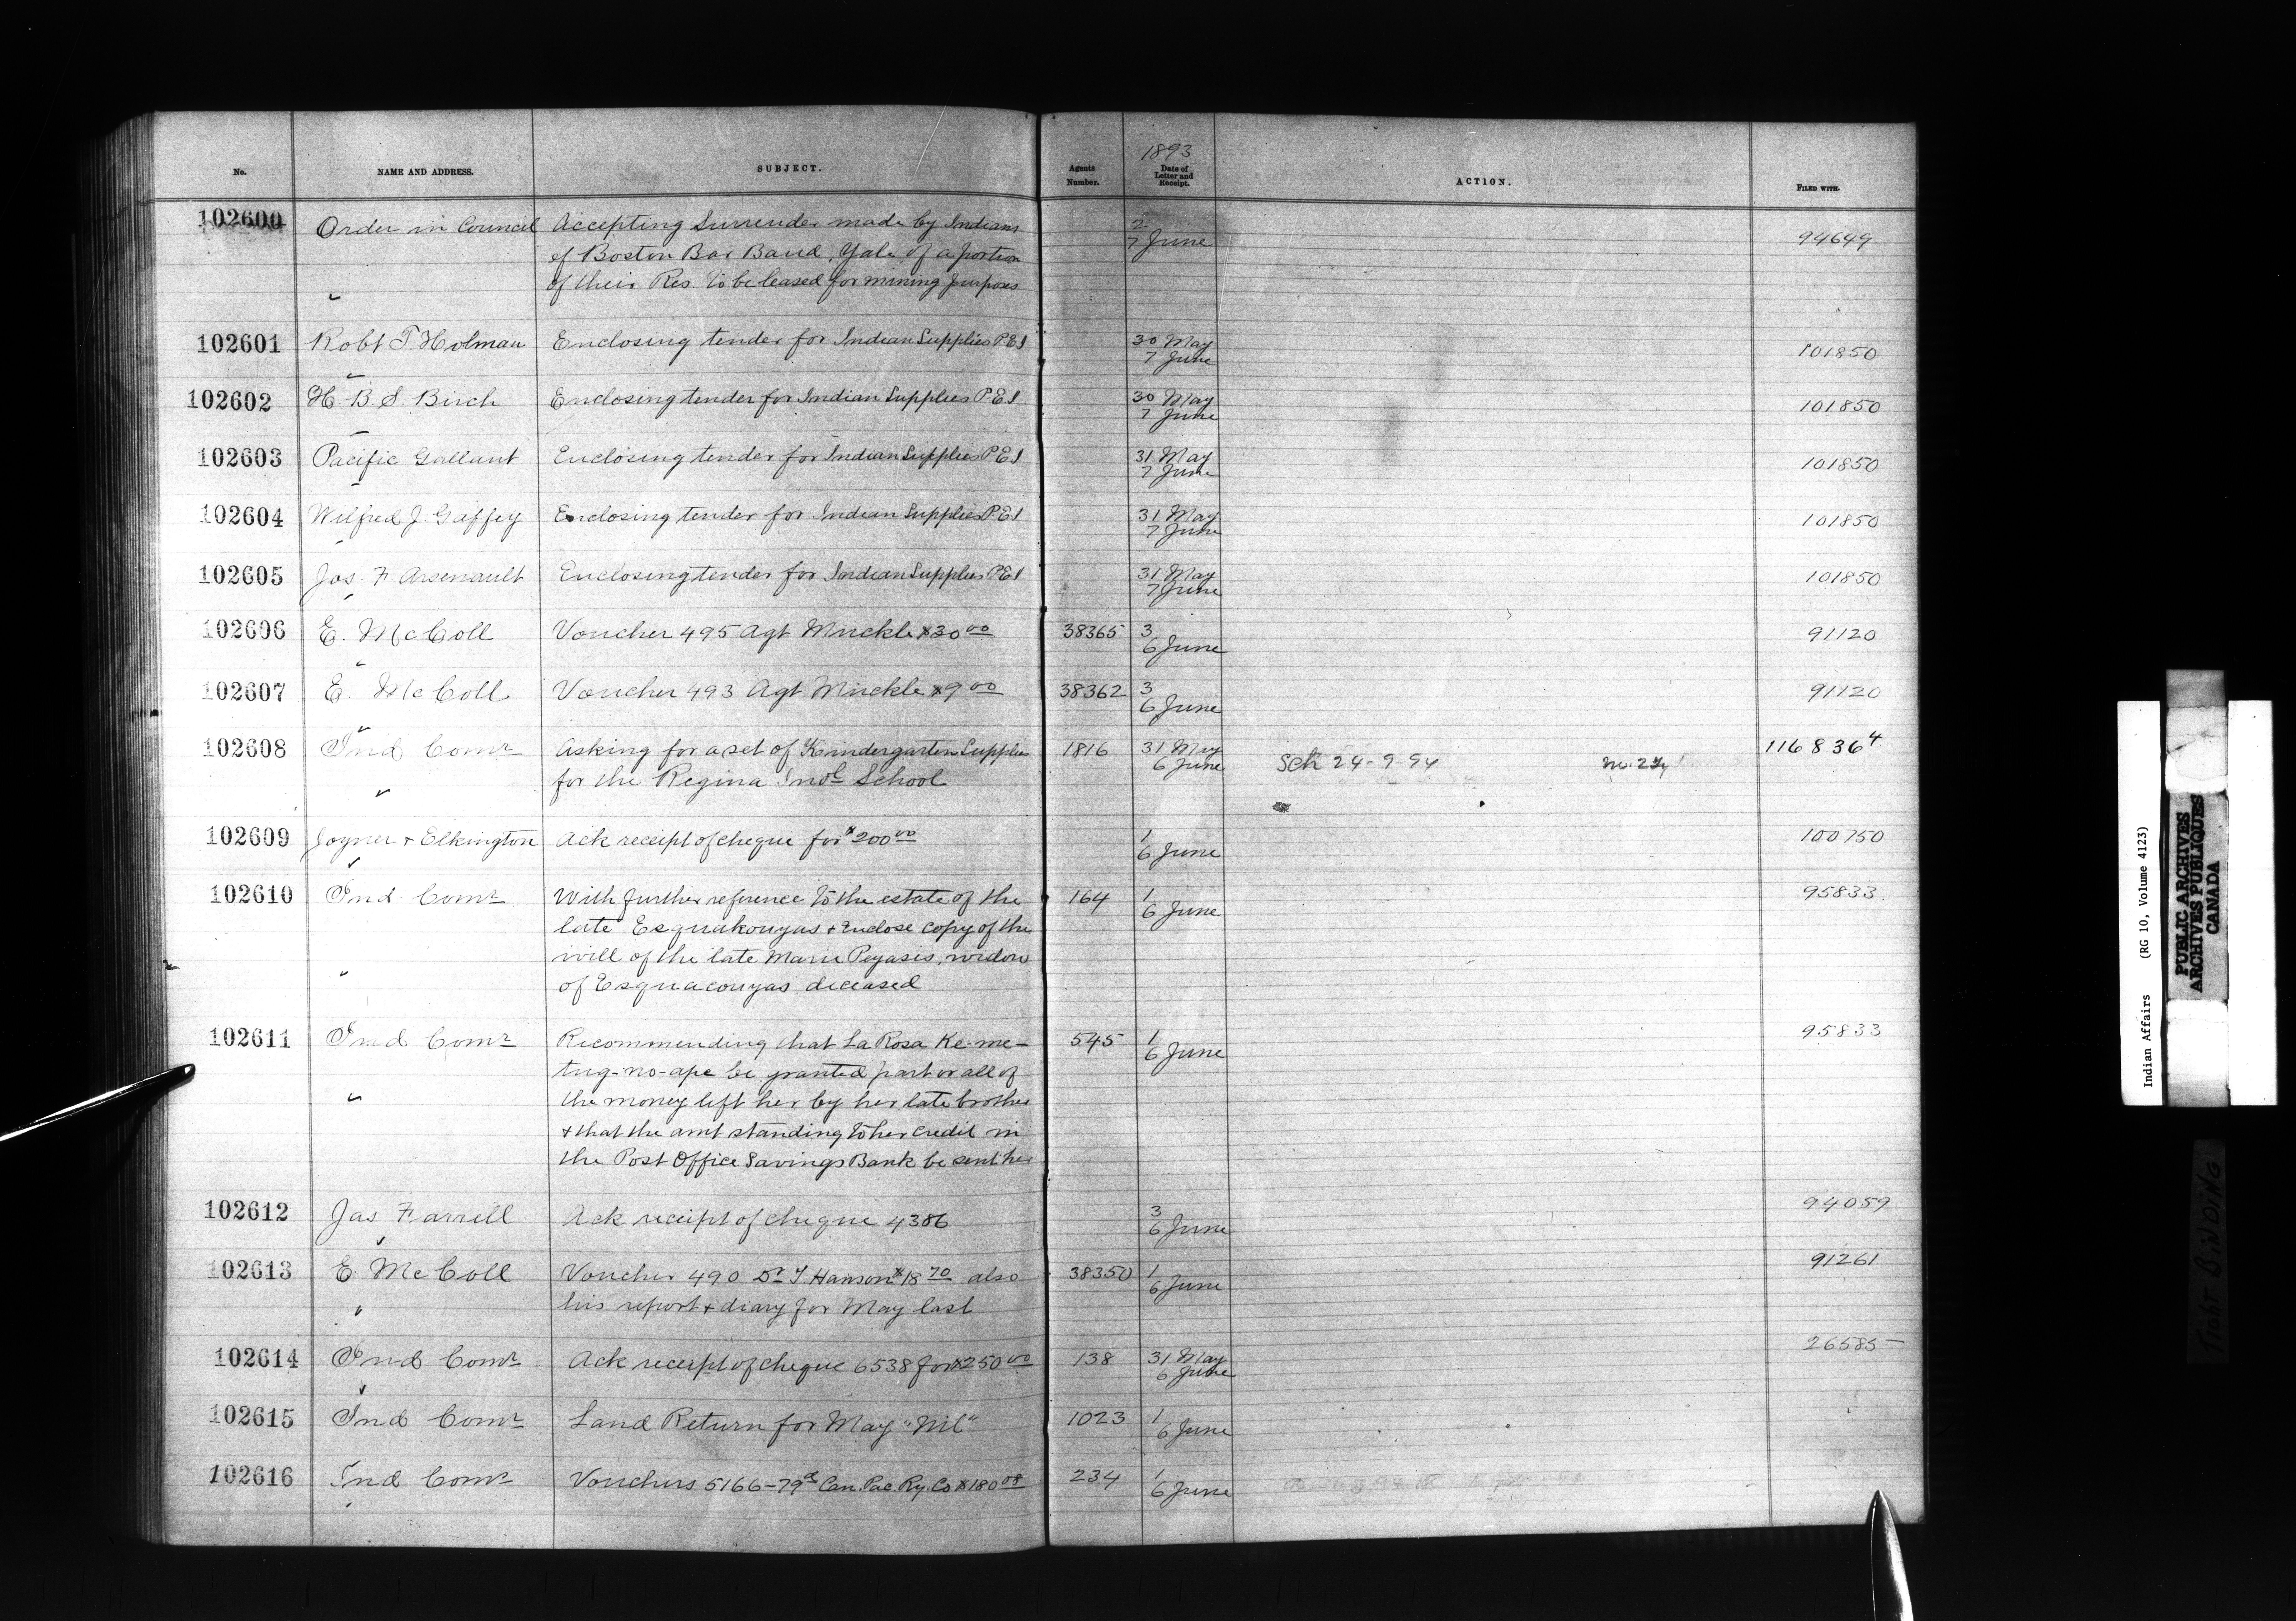 1893
No. NAME AND ADDRESS. SUBJECT. Agents Number. Date of Letter and Receipt. ACTION. FILED WITH.
102600 Order in Council Accepting Surrender made by Indians 2 7 June 94649
of Boston Bar Band, Yale, of a portion
of their Res. to be leased for mining purposes
102601 Robt T. Holman Enclosing tender for Indian Supplies P.E.I 30 May 7 June 101850
102602 H. B. S. Birch Enclosing tender for Indian Supplies P.E.I 30 May 7 June 101850
102603 Pacific Gallant Enclosing tender for Indian Supplies P.E.I 31 May 7 June 101850
102604 Wilfred J. Gaffey Enclosing tender for Indian Supplies P.E.I 31 May 7 June 101850
102605 Jos. F. Arsenault Enclosing tender for Indian Supplies P.E.I 31 May 7 June 101850
102606 E. McColl Voucher 495 Agt Muckle $30 00 38365 3 6 June 91120
102607 E. McColl Voucher 493 Agt Muckle $9 00 38362 3 6 June 91120
102608 Ind Comr Asking for a set of Kindergarten Supplies 1816 31 May 6 June Sch 24-9-94 116836 4
for the Regina Indl School
102609 Joyner & Elkington Ack receipt of cheque for $200 00 1 6 June 100750
102610 Ind Comr With further reference to the estate of the 164 1 6 June 95833
late Esquakouyas & enclose copy of the
will of the late Marie Pegasis, widow
of Esquacouyas deceased
102611 Ind Comr Recommending that La Rosa Ke-me- 545 1 6 June 95833
tug-no-ape be granted part or all of
the money left her by her late brother
& that the amt standing to her credit in
the Post Office Savings Bank be sent her
102612 Jas Farrell Ack receipt of cheque 4386 3 6 June 94059
102613 E McColl Voucher 490 Dr T Hanson $18 70 also 38350 1 6 June 91261
his report & diary for May last
102614 Ind Comr Ack receipt of cheque 6538 for $250 00 138 31 May 6 June 26585
102615 Ind Comr Land Return for May "Nil" 1023 1 6 June
102616 Ind Comr Vouchers 5166-79a Can. Pac. Ry. Co $180 08 234 1 6 June
Indian Affairs (RG 10, Volume 4123)
PUBLIC ARCHIVES
ARCHIVES PUBLIQUES
CANADA
TIGHT BINDING